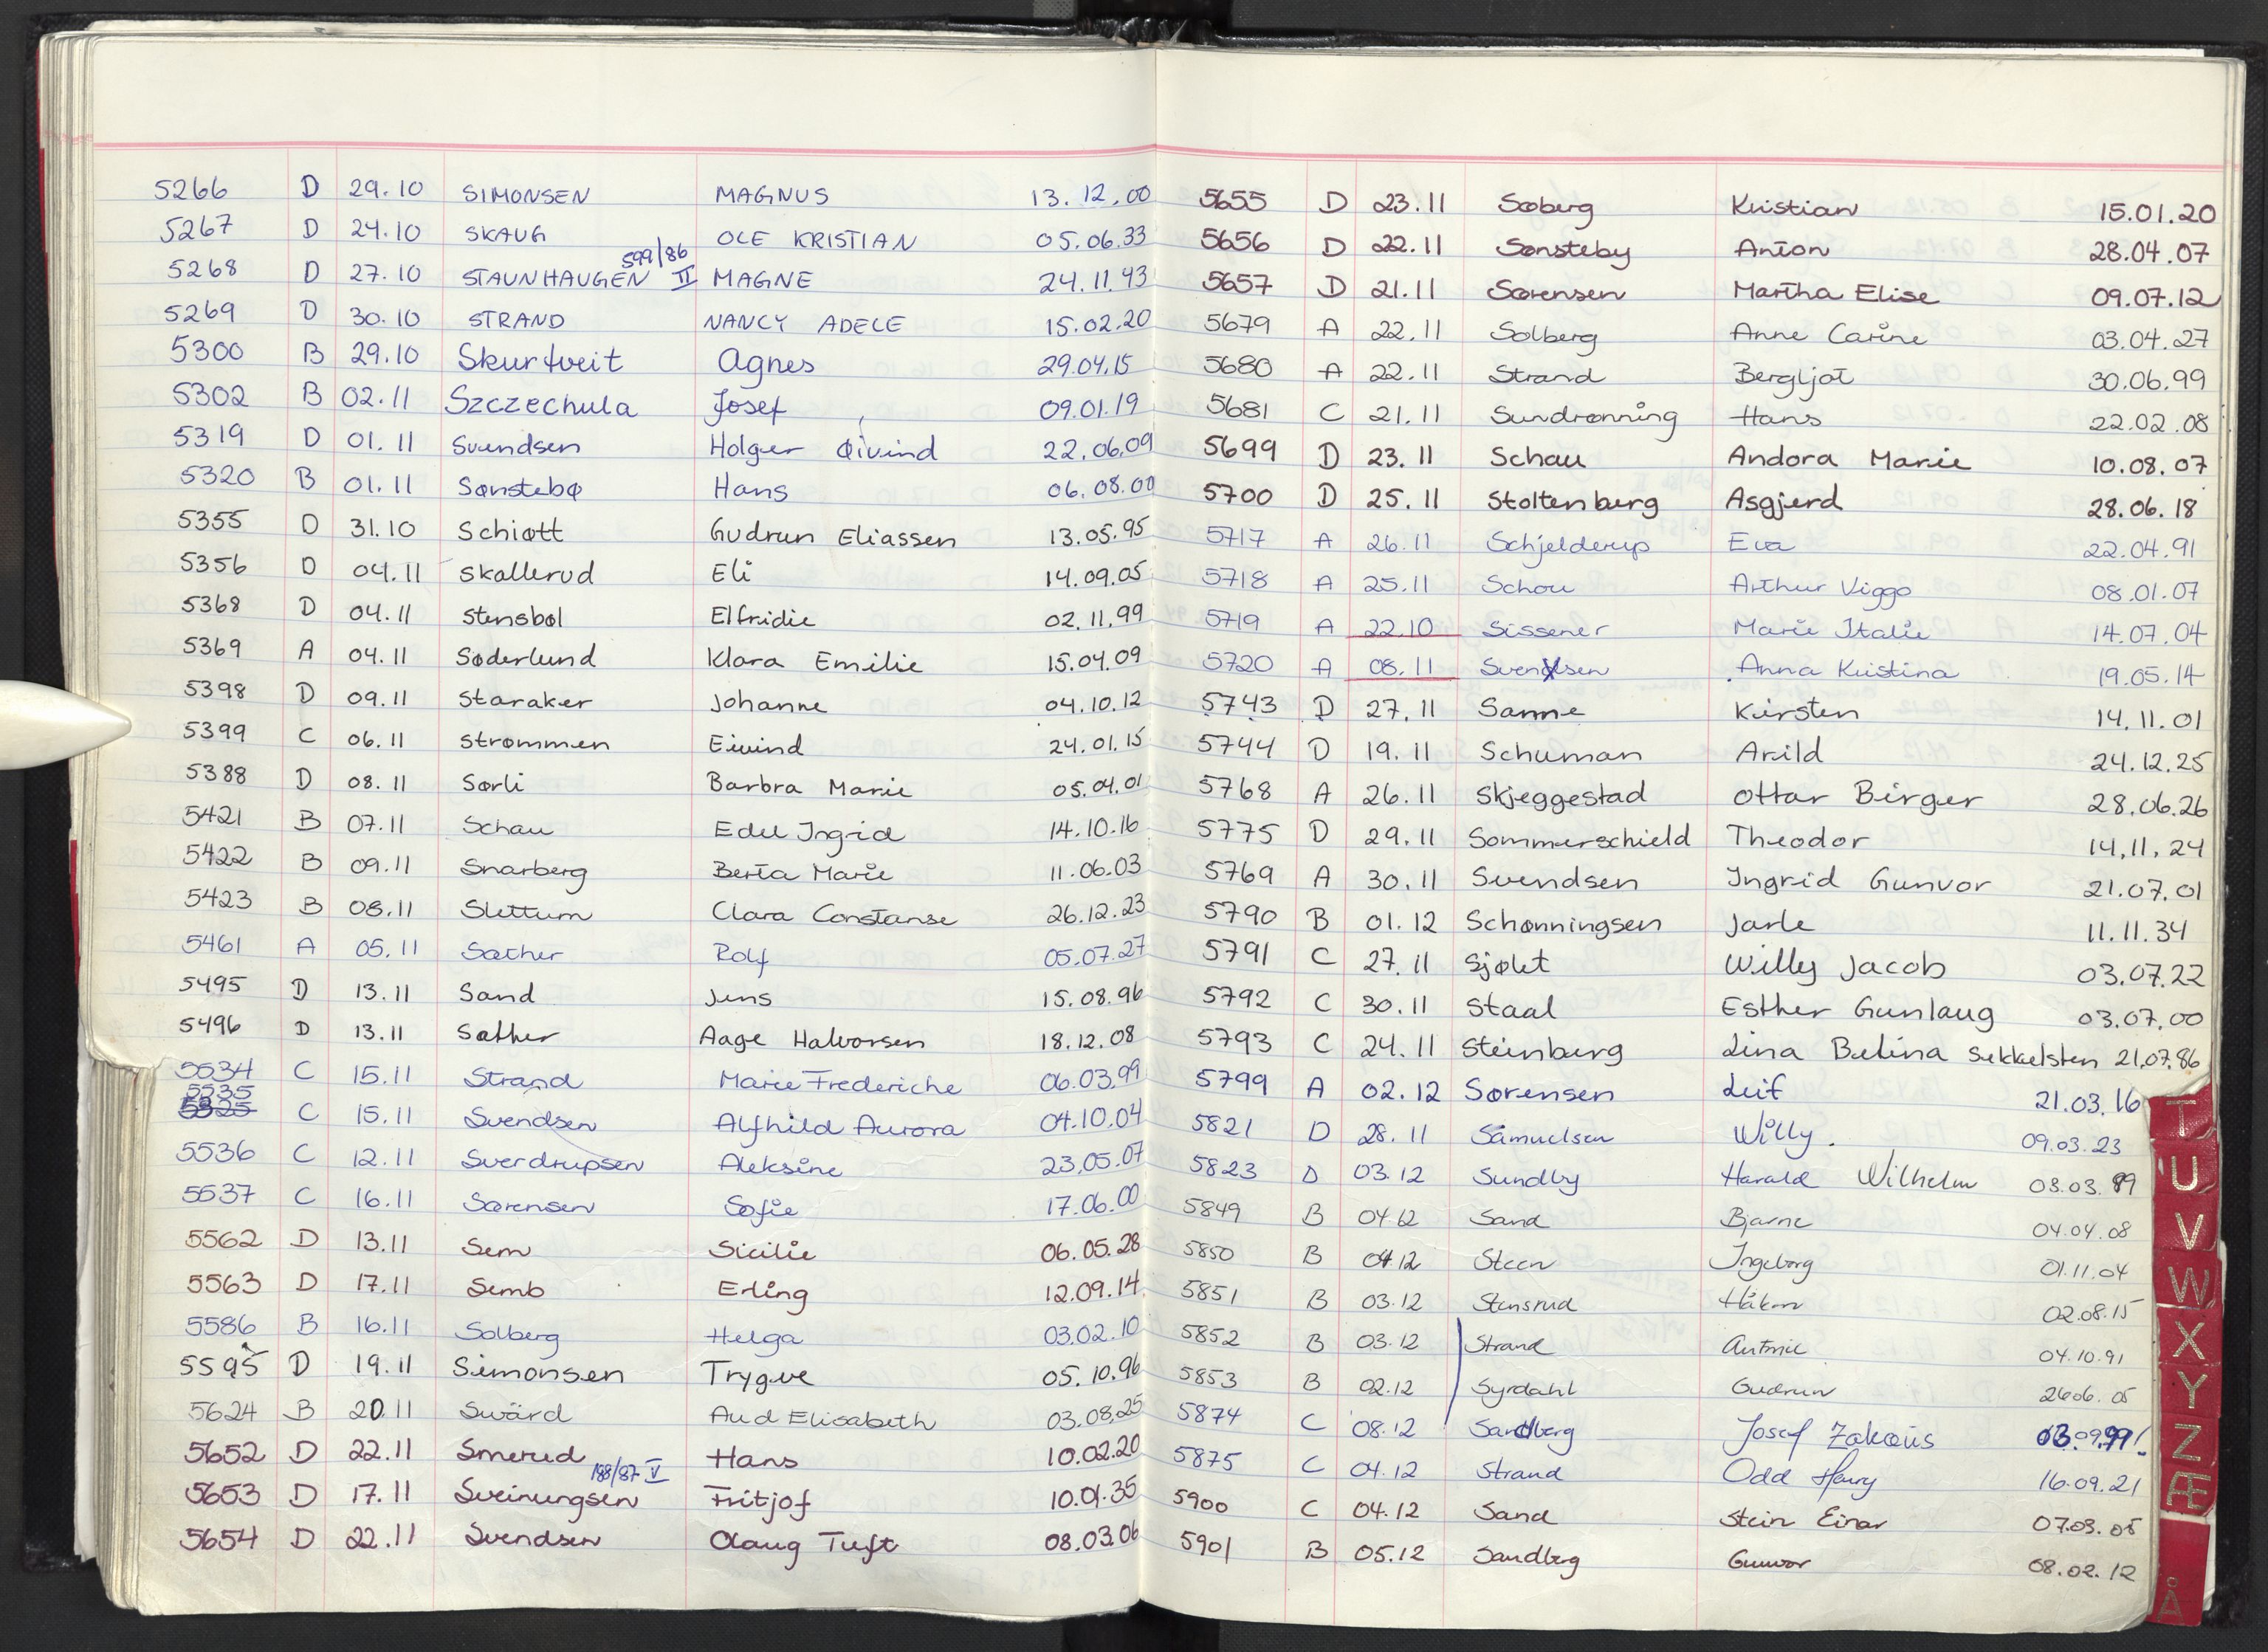 5266 D 29.10 SIMONSEN MAGNUS 13.12.00
5267 D 24.10 SKAUG OLE KRISTIAN 05.06.33
599/86
5268 D 27.10 STAUNHAUGEN II MAGNE 24.11.43
5269 D 30.10 STRAND NANCY ADELE 15.02.20
5300 B 29.10 Skurtveit Agnes 29.04.15
5302 B 02.11 Szczechula Josef 09.01.19
5319 D 01.11 Svendsen Holger Øivind 22.06.09
5320 B 01.11 Sønstebø Hans 06.08.00
5355 D 31.10 Schiøtt Gudrun Eliassen 13.05.95
5356 D 04.11 Skallerud Eli 14.09.05
5368 D 04.11 Stensbøl Elfridie 02.11.99
5369 A 04.11 Søderlund Klara Emilie 15.04.09
5398 D 09.11 Staraker Johanne 04.10.12
5399 C 06.11 Strømmen Eivind 24.01.15
5388 D 08.11 Sørli Barbra Marie 05.04.01
5421 B 07.11 Schau Edel Ingrid 14.10.16
5422 B 09.11 Snarberg Berta Marie 11.06.03
5423 B 08.11 Slettum Clara Constanse 26.12.23
5461 A 05.11 Sæther Rolf 05.07.27
5495 D 13.11 Sand Jens 15.08.96
5496 D 13.11 Sæther Aage Halvorsen 18.12.08
5534 C 15.11 Strand Marie Frederiche 06.03.99
5535
5325 C 15.11 Svendsen Alfhild Aurora 04.10.04
5536 C 12.11 Sverdrupsen Aleksine 23.05.07
5537 C 16.11 Sørensen Sofie 17.06.00
5562 D 13.11 Sem Sicilie 06.05.28
5563 D 17.11 Semb Erling 12.09.14
5586 B 16.11 Solberg Helga 03.02.10
5595 D 19.11 Simonsen Trygve 05.10.96
5624 B 20.11 Swärd Aud Elisabeth 03.08.25
5652 D 22.11 Smerud Hans 10.02.20
188/87 V
5653 D 17.11 Sveinungsen Fritjof 10.01.35
5654 D 22.11 Svendsen Olaug Tuft 08.03.06
5655 D 23.11 Søberg Kristian 15.01.20
5656 D 22.11 Sønsteby Anton 28.04.07
5657 D 21.11 Sørensen Martha Elise 09.07.12
5679 A 22.11 Solberg Anne Carine 03.04.27
5680 A 22.11 Strand Bergljot 30.06.99
5681 C 21.11 Sundrønning Hans 22.02.08
5699 D 23.11 Schau Andora Marie 10.08.07
5700 D 25.11 Stoltenberg Asgjerd 28.06.18
5717 A 26.11 Schjelderup Eva 22.04.91
5718 A 25.11 Schou Arthur Viggo 08.01.07
5719 A 22.10 Sissener Marie Italie 14.07.04
5720 A 08.11 Svendsen Anna Kristina 19.05.14
5743 D 27.11 Sanne Kirsten 14.11.01
5744 D 19.11 Schuman Arild 24.12.25
5768 A 26.11 Skjeggestad Ottar Birger 28.06.26
5775 D 29.11 Sommerschield Theodor 14.11.24
5769 A 30.11 Svendsen Ingrid Gunvor 21.07.01
5790 B 01.12 Schønningsen Jarle 11.11.34
5791 C 27.11 Sjølet Willy Jacob 03.07.22
5792 C 30.11 Staal Esther Gunlaug 03.07.00
5793 C 24.11 Steinberg Lina Belina Sekkelsten 21.07.86
5799 A 02.12 Sørensen Leif 21.03.16
5821 D 28.11 Samuelsen Willy. 09.03.23
5823 D 03.12 Sundby Harald Wilhelm 03.03.89
5849 B 04.12 Sand Bjarne 04.04.08
5850 B 04.12 Steen Ingeborg 01.11.04
5851 B 03.12 Stensrud Håkon 02.08.15
5852 B 03.12 Strand Antonie 04.10.91
5853 B 02.12 Syrdahl Gudrun 26.06.05
5874 C 08.12 Sandberg Josef Zakæus 03.09.99!
5875 C 04.12 Strand Odd Henry 16.09.21
5900 C 04.12 Sand Stein Einar 07.03.05
5901 B 05.12 Sandberg Gunvor 08.02.12
T
U
V
W
X
Y
Z
Æ
Å